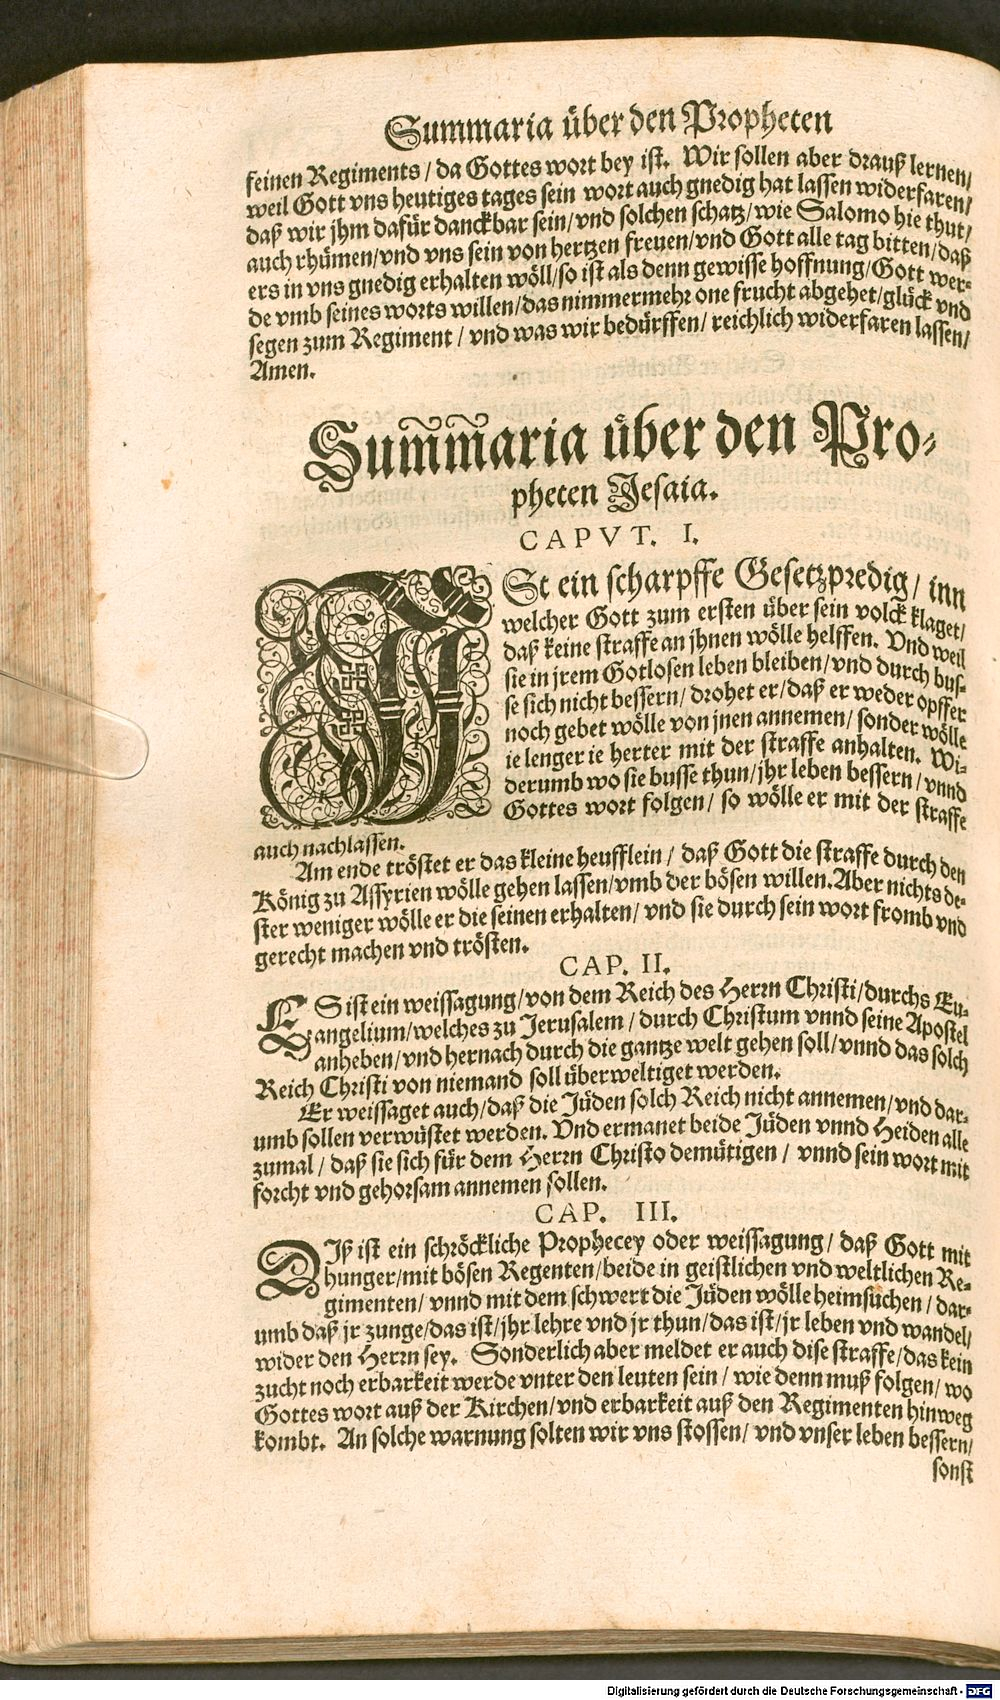 Summaria über den Propheten
feinen Regiments / da Gottes wort bey ist. Wir sollen aber drauß lernen/
weil Gott vns heutiges tages sein wort auch gnedig hat lassen widerfaren/
daß wir jhm dafür danckbar sein/vnd solchen schatz/wie Salomo hie thut/
auch rhümen/vnd vns sein von hertzen freuen/vnd Gott alle tag bitten/daß
ers in vns gnedig erhalten wöll/so ist als denn gewisse hoffnung/Gott wer-
de vmb seines worts willen/das nimmermehr one frucht abgehet/glück vnd
segen zum Regiment / vnd was wir bedürffen/ reichlich widerfaren lassen/
Amen.
Sum̃m̃aria über den Pro-
pheten Jesaia.
CAPVT. I.
ISt ein scharpffe Gesetzpredig/ inn
welcher Gott zum ersten über sein volck klaget/
daß keine straffe an jhnen wölle helffen. Vnd weil
sie in jrem Gotlosen leben bleiben/vnd durch bus-
se sich nicht bessern/ drohet er/daß er weder opffer
noch gebet wölle von jnen annemen/ sonder wölle
ie lenger ie herter mit der straffe anhalten. Wi-
derumb wo sie busse thun/jhr leben bessern/vnnd
Gottes wort folgen/ so wölle er mit der straffe
auch nachlassen.
Am ende tröstet er das kleine heufflein / daß Gott die straffe durch den
König zu Assyrien wölle gehen lassen/vmb der bösen willen. Aber nichts de-
ster weniger wölle er die seinen erhalten/ vnd sie durch sein wort fromb vnd
gerecht machen vnd trösten.
CAP. II.
ES ist ein weissagung/von dem Reich des Herrn Christi/durchs Eu-
angelium/welches zu Jerusalem / durch Christum vnnd seine Apostel
anheben/vnd hernach durch die gantze welt gehen soll/vnnd das solch
Reich Christi von niemand soll überweltiget werden.
Er weissaget auch/daß die Jüden solch Reich nicht annemen/vnd dar-
umb sollen verwüstet werden. Vnd ermanet beide Jüden vnnd Heiden alle
zumal / daß sie sich für dem Herrn Christo demütigen / vnnd sein wort mit
forcht vnd gehorsam annemen sollen.
CAP. III.
DIß ist ein schröckliche Prophecey oder weissagung/ daß Gott mit
hunger/mit bösen Regenten/beide in geistlichen vnd weltlichen Re-
gimenten/ vnnd mit dem schwert die Jüden wölle heimsuchen / dar-
umb daß jr zunge/das ist/jhr lehre vnd jr thun/das ist/jr leben vnd wandel/
wider den Herrn sey. Sonderlich aber meldet er auch dise straffe/das kein
zucht noch erbarkeit werde vnter den leuten sein / wie denn muß folgen/ wo
Gottes wort auß der Kirchen/vnd erbarkeit auß den Regimenten hinweg
kombt. An solche warnung solten wir vns stossen/ vnd vnser leben bessern/
sonst
Digitalisierung gefördert durch die Deutsche Forschungsgemeinschaft - DFG